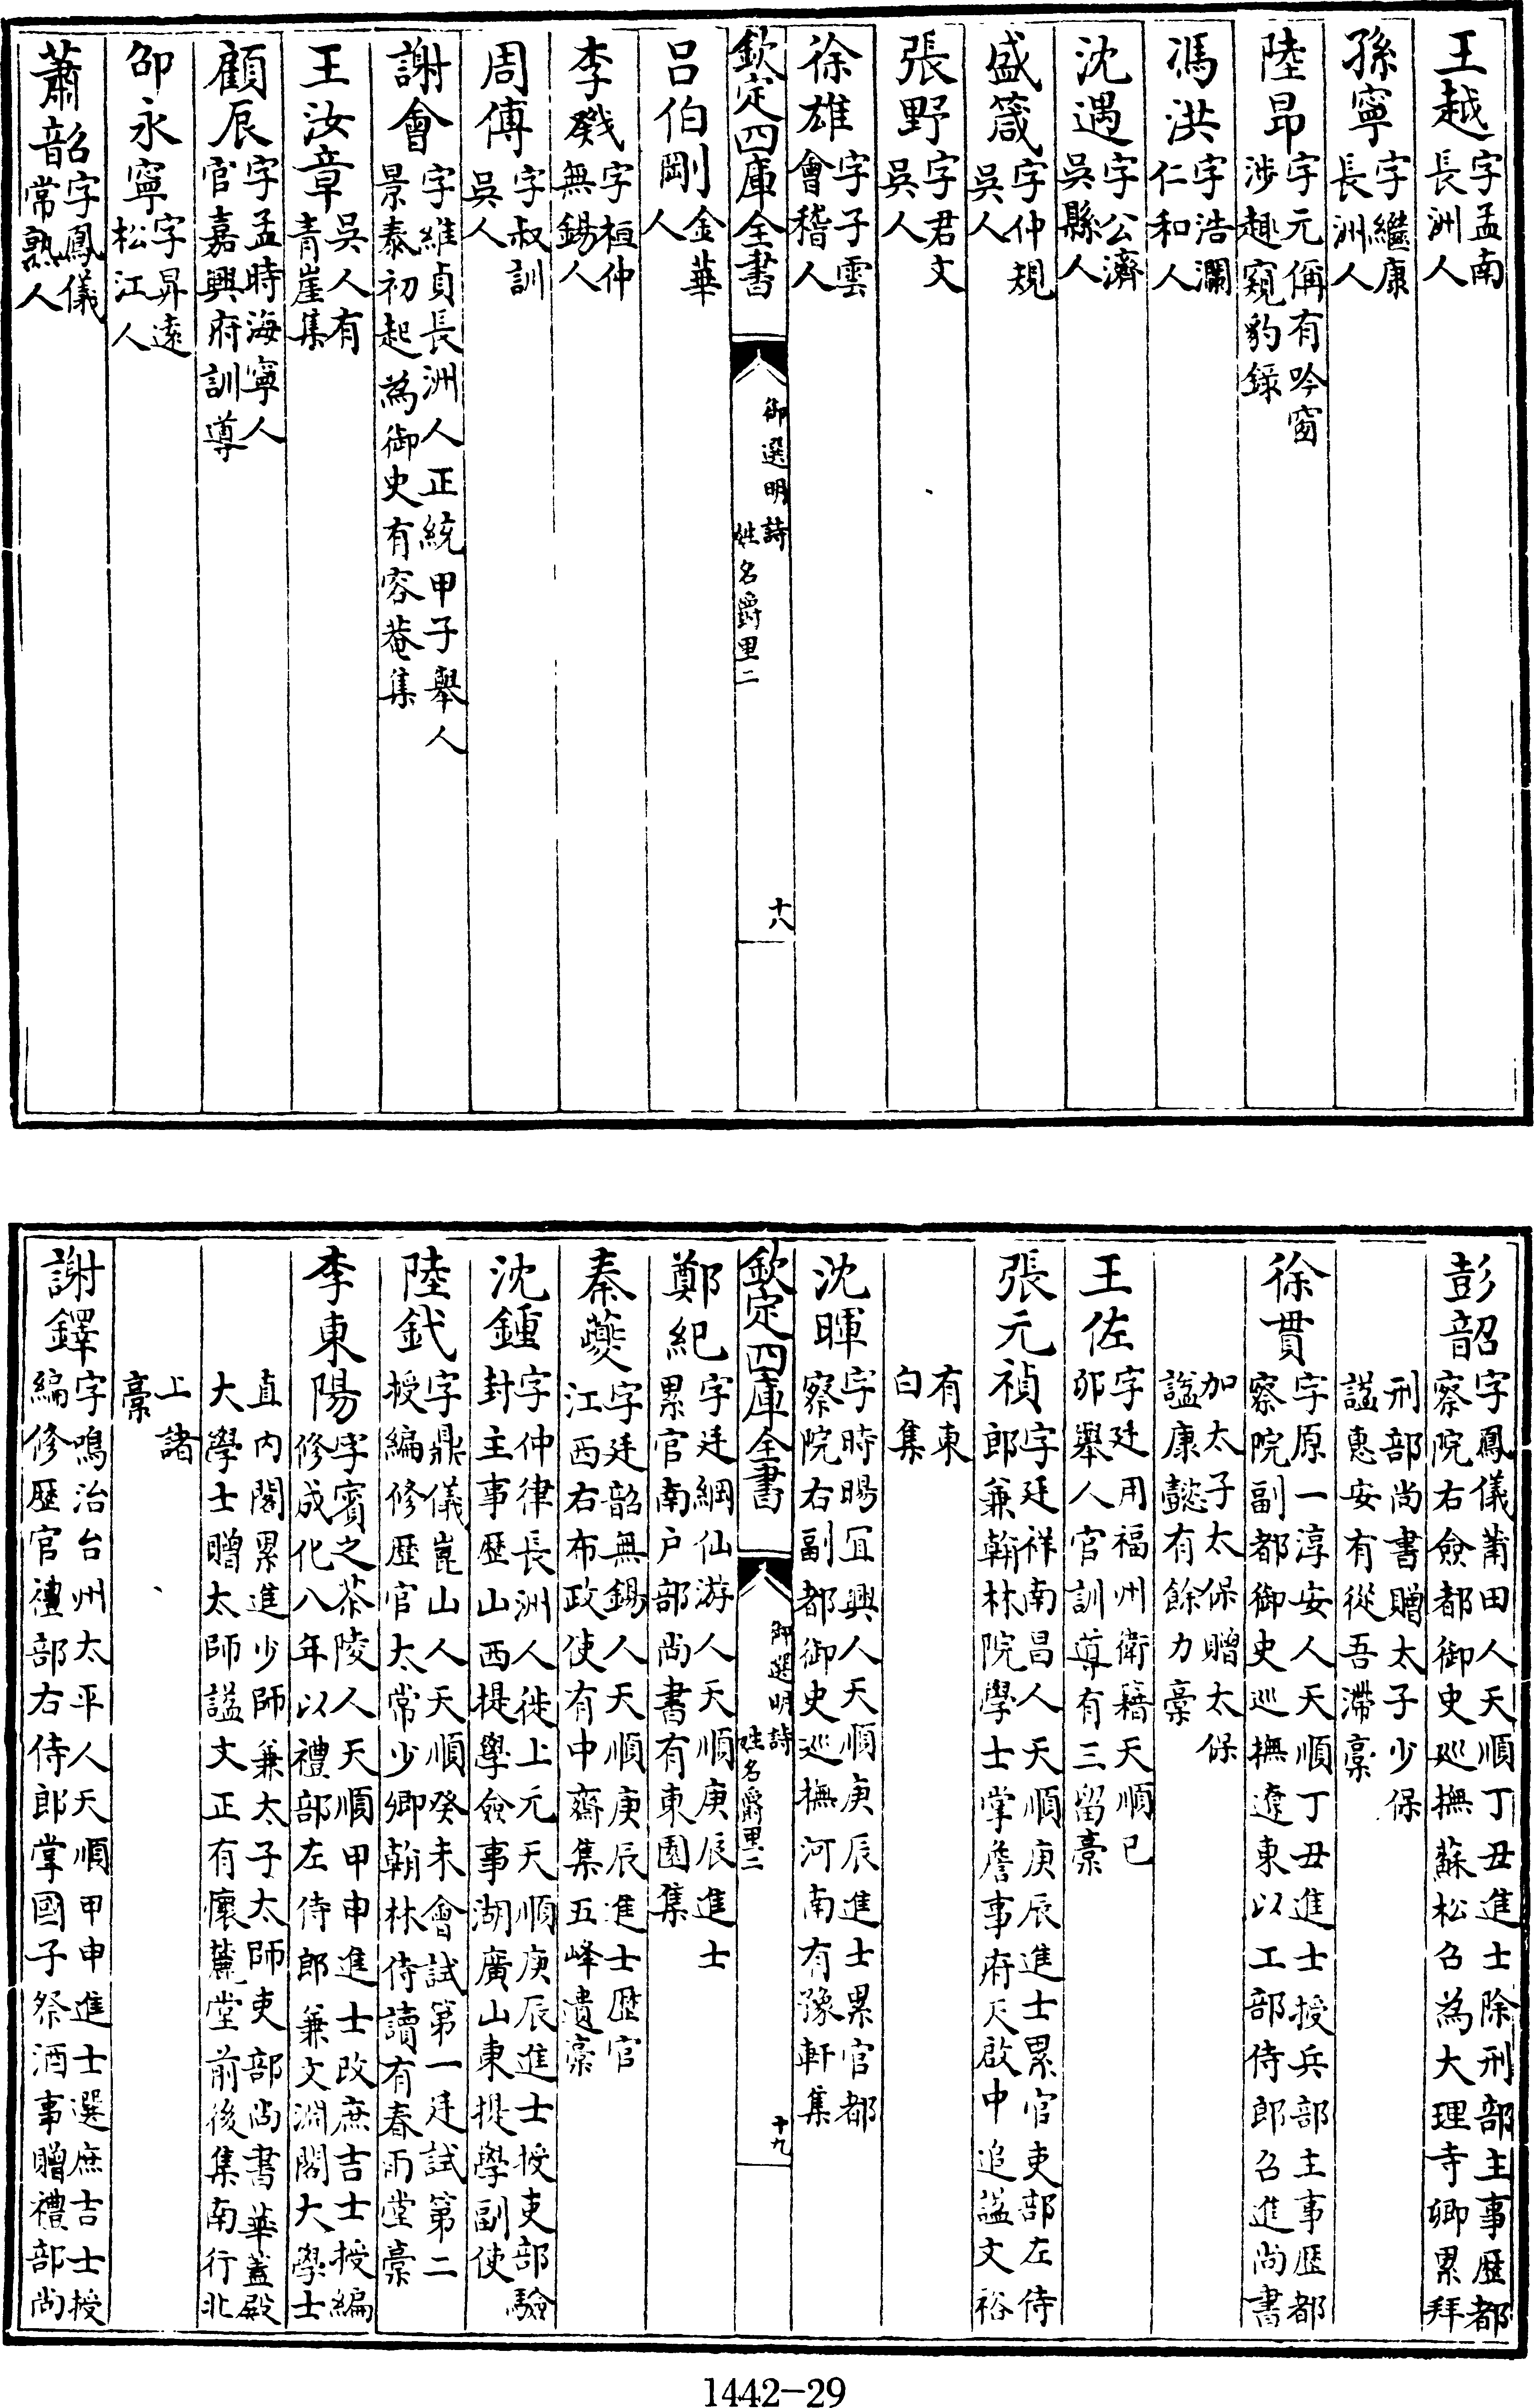 王越字孟南長洲人
孫寧字繼康長洲人
陸昂字元偁有吟窗涉趣窺豹錄
馮洪字浩瀾仁和人
沈遇字公濟吳縣人
盛箴字仲規吳人
張野字君文吳人
徐雄字子雲會稽人
欽定四庫全書 御選明詩姓名爵里二 十八
呂伯剛金華人
李戣字桓仲無錫人
周傅字叔訓吳人
謝會字維貞長洲人正統甲子舉人景泰初起為御史有容菴集
王汝章吳人有青崖集
顧辰字孟時海寧人官嘉興府訓導
邵永寧字昇遠松江人
蕭韶字鳳儀常熟人
彭韶字鳳儀莆田人天順丁丑進士除刑部主事歷都察院右僉都御史巡撫蘇松召為大理寺卿累拜
刑部尚書贈太子少保諡惠安有從吾滯稾
徐貫字原一淳安人天順丁丑進士授兵部主事歷都察院副都御史巡撫遼東以工部侍郎召進尚書
加太子太保贈太保諡康懿有餘力稾
王佐字廷用福州衛籍天順己卯舉人官訓導有三留稾
張元禎字廷祥南昌人天順庚辰進士累官吏部左侍郎兼翰林院學士掌詹事府天啟中追諡文裕
有東白集
沈暉字時暘宜興人天順庚辰進士累官都察院右副都御史巡撫河南有豫軒集
欽定四庫全書 御選明詩姓名爵里二 十九
鄭紀字廷綱仙游人天順庚辰進士累官南戶部尚書有東園集
秦夔字廷韶無錫人天順庚辰進士歷官江西右布政使有中齋集五峰遺稾
沈鍾字仲律長洲人徙上元天順庚辰進士授吏部驗封主事歷山西提學僉事湖廣山東提學副使
陸釴字鼎儀崑山人天順癸未會試第一廷試第二授編修歷官太常少卿翰林侍讀有春雨堂稾
李東陽字賓之茶陵人天順甲申進士改庶吉士授編修成化八年以禮部左侍郎兼文淵閣大學士
直內閣累進少師兼太子太師吏部尚書華蓋殿大學士贈太師諡文正有懷麓堂前後集南行北
上諸稾
謝鐸字鳴治台州太平人天順甲申進士選庶吉士授編修歷官禮部右侍郎掌國子祭酒事贈禮部尚
1442-29